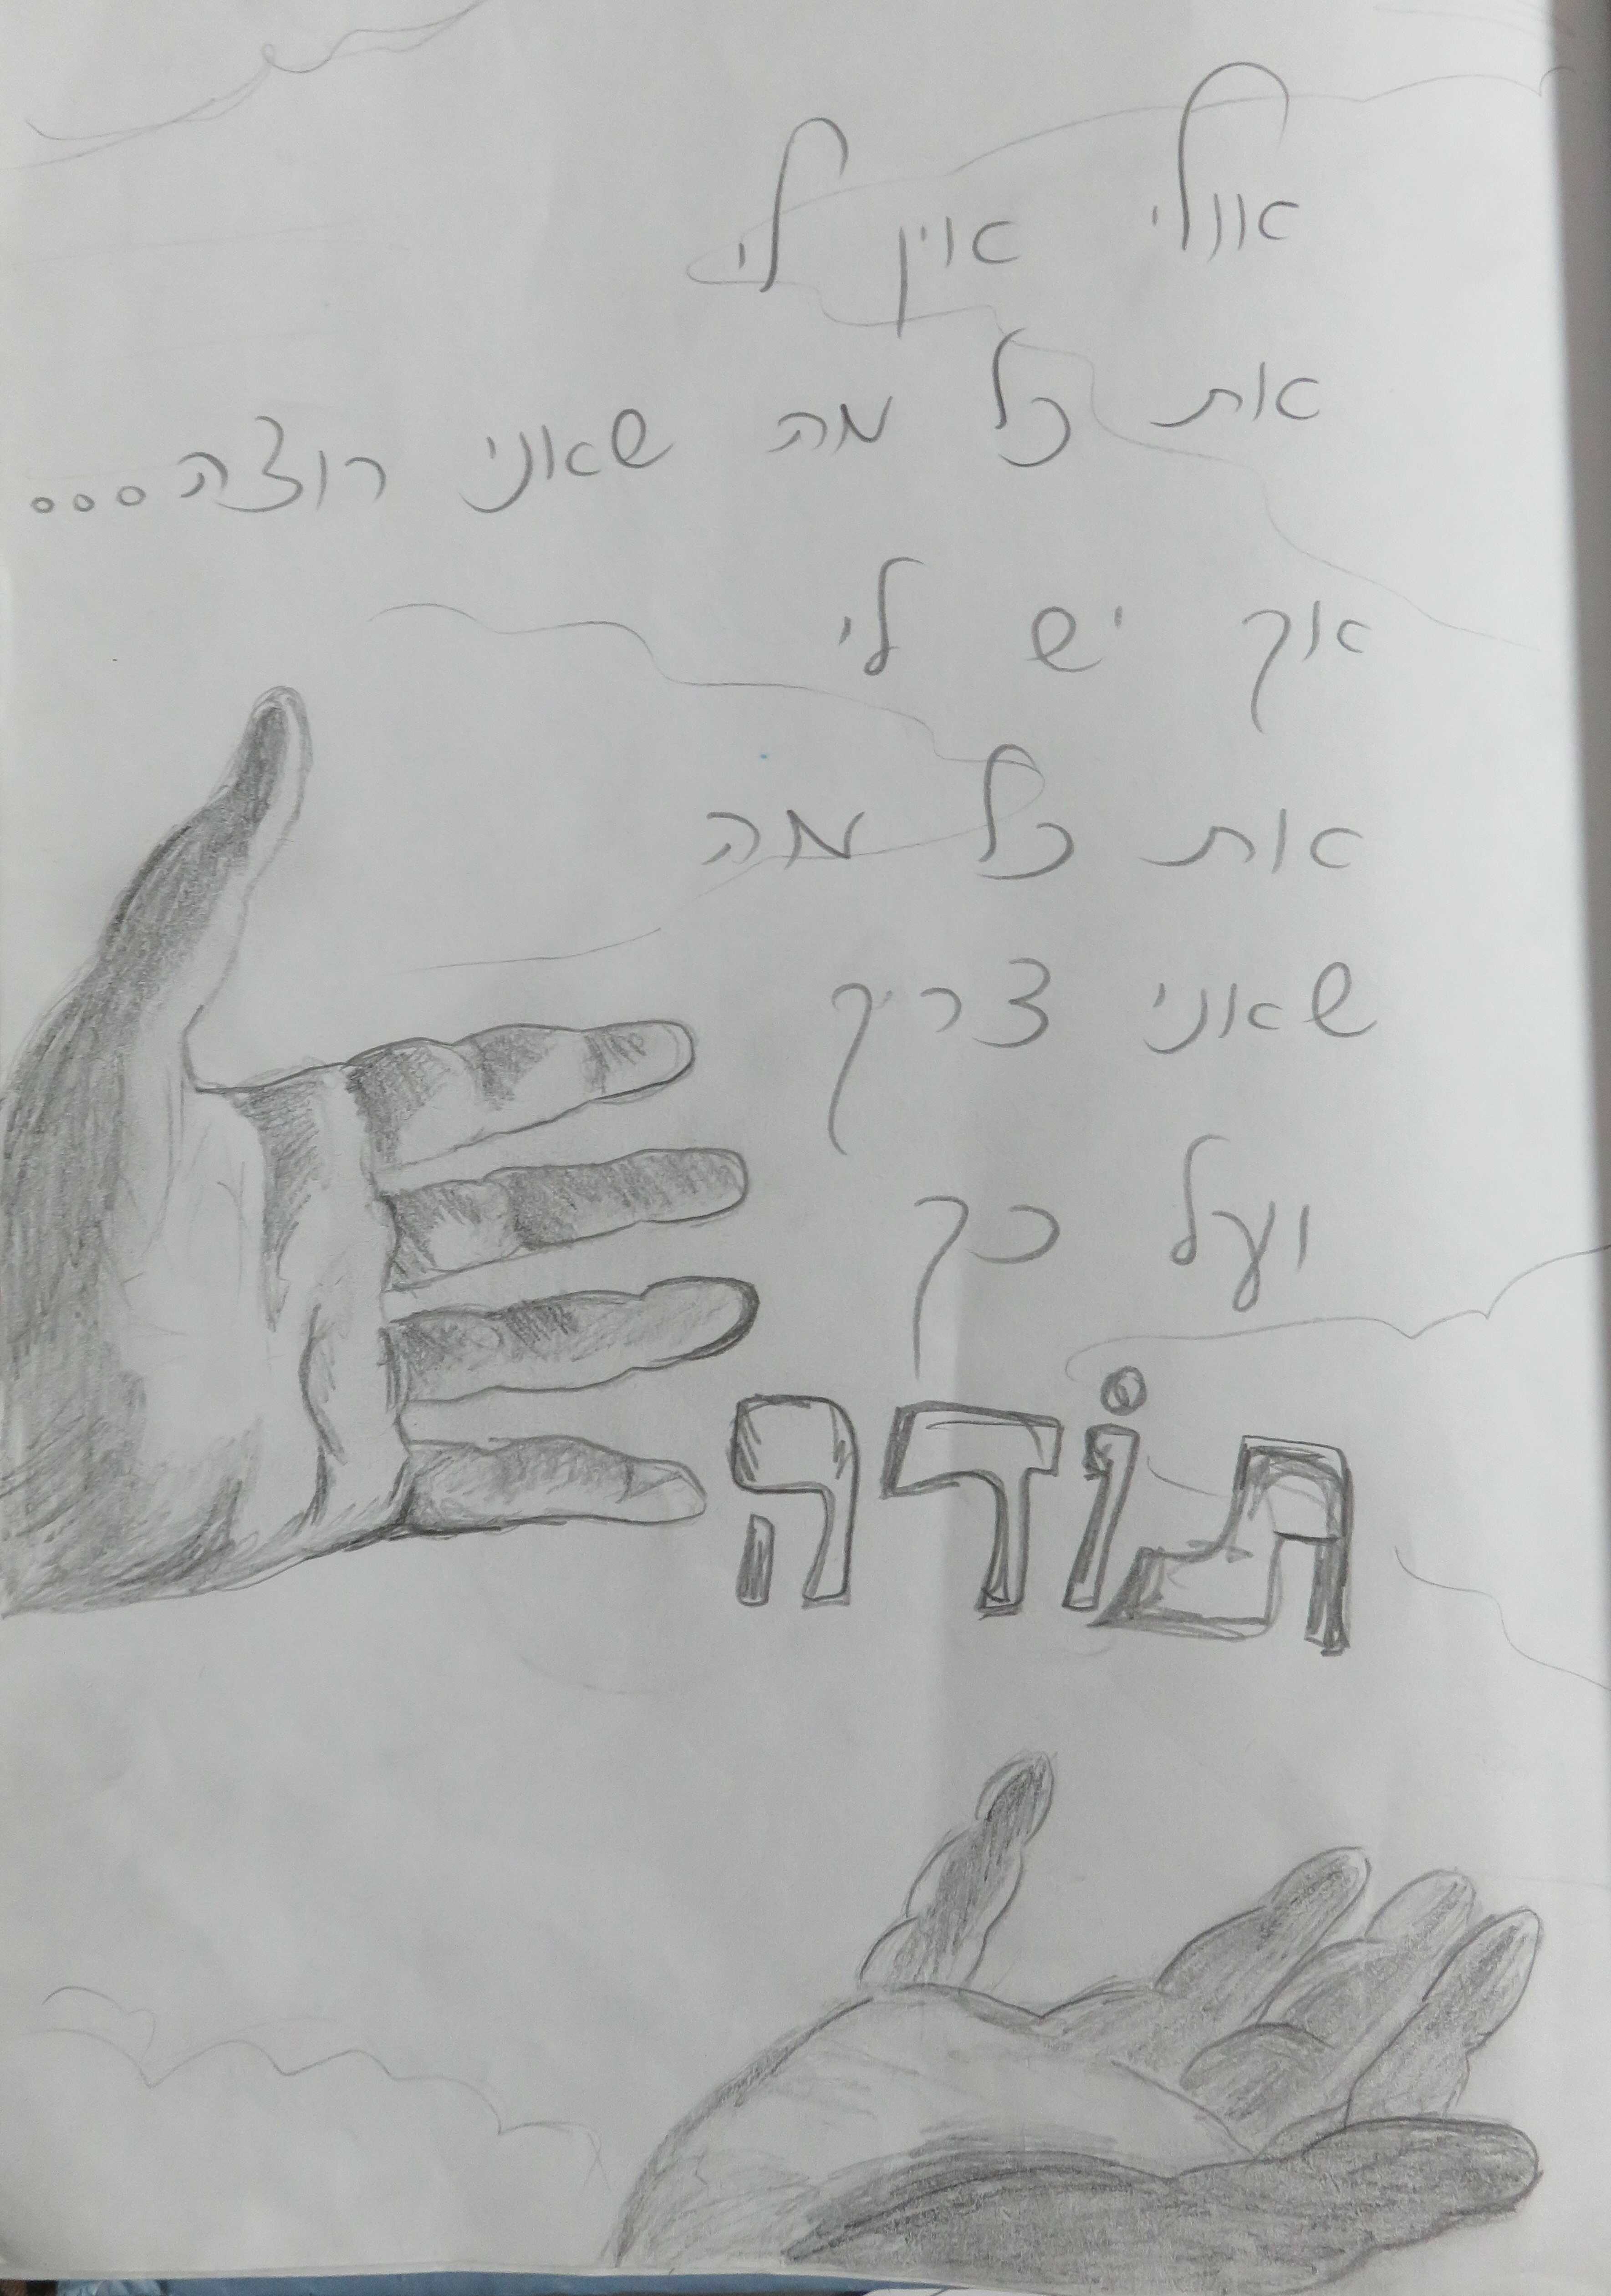 אולי אין לי
את כל מה שאני רוצה...
אך יש לי
את כל מה
שאני צריך
ועל כך
תודה